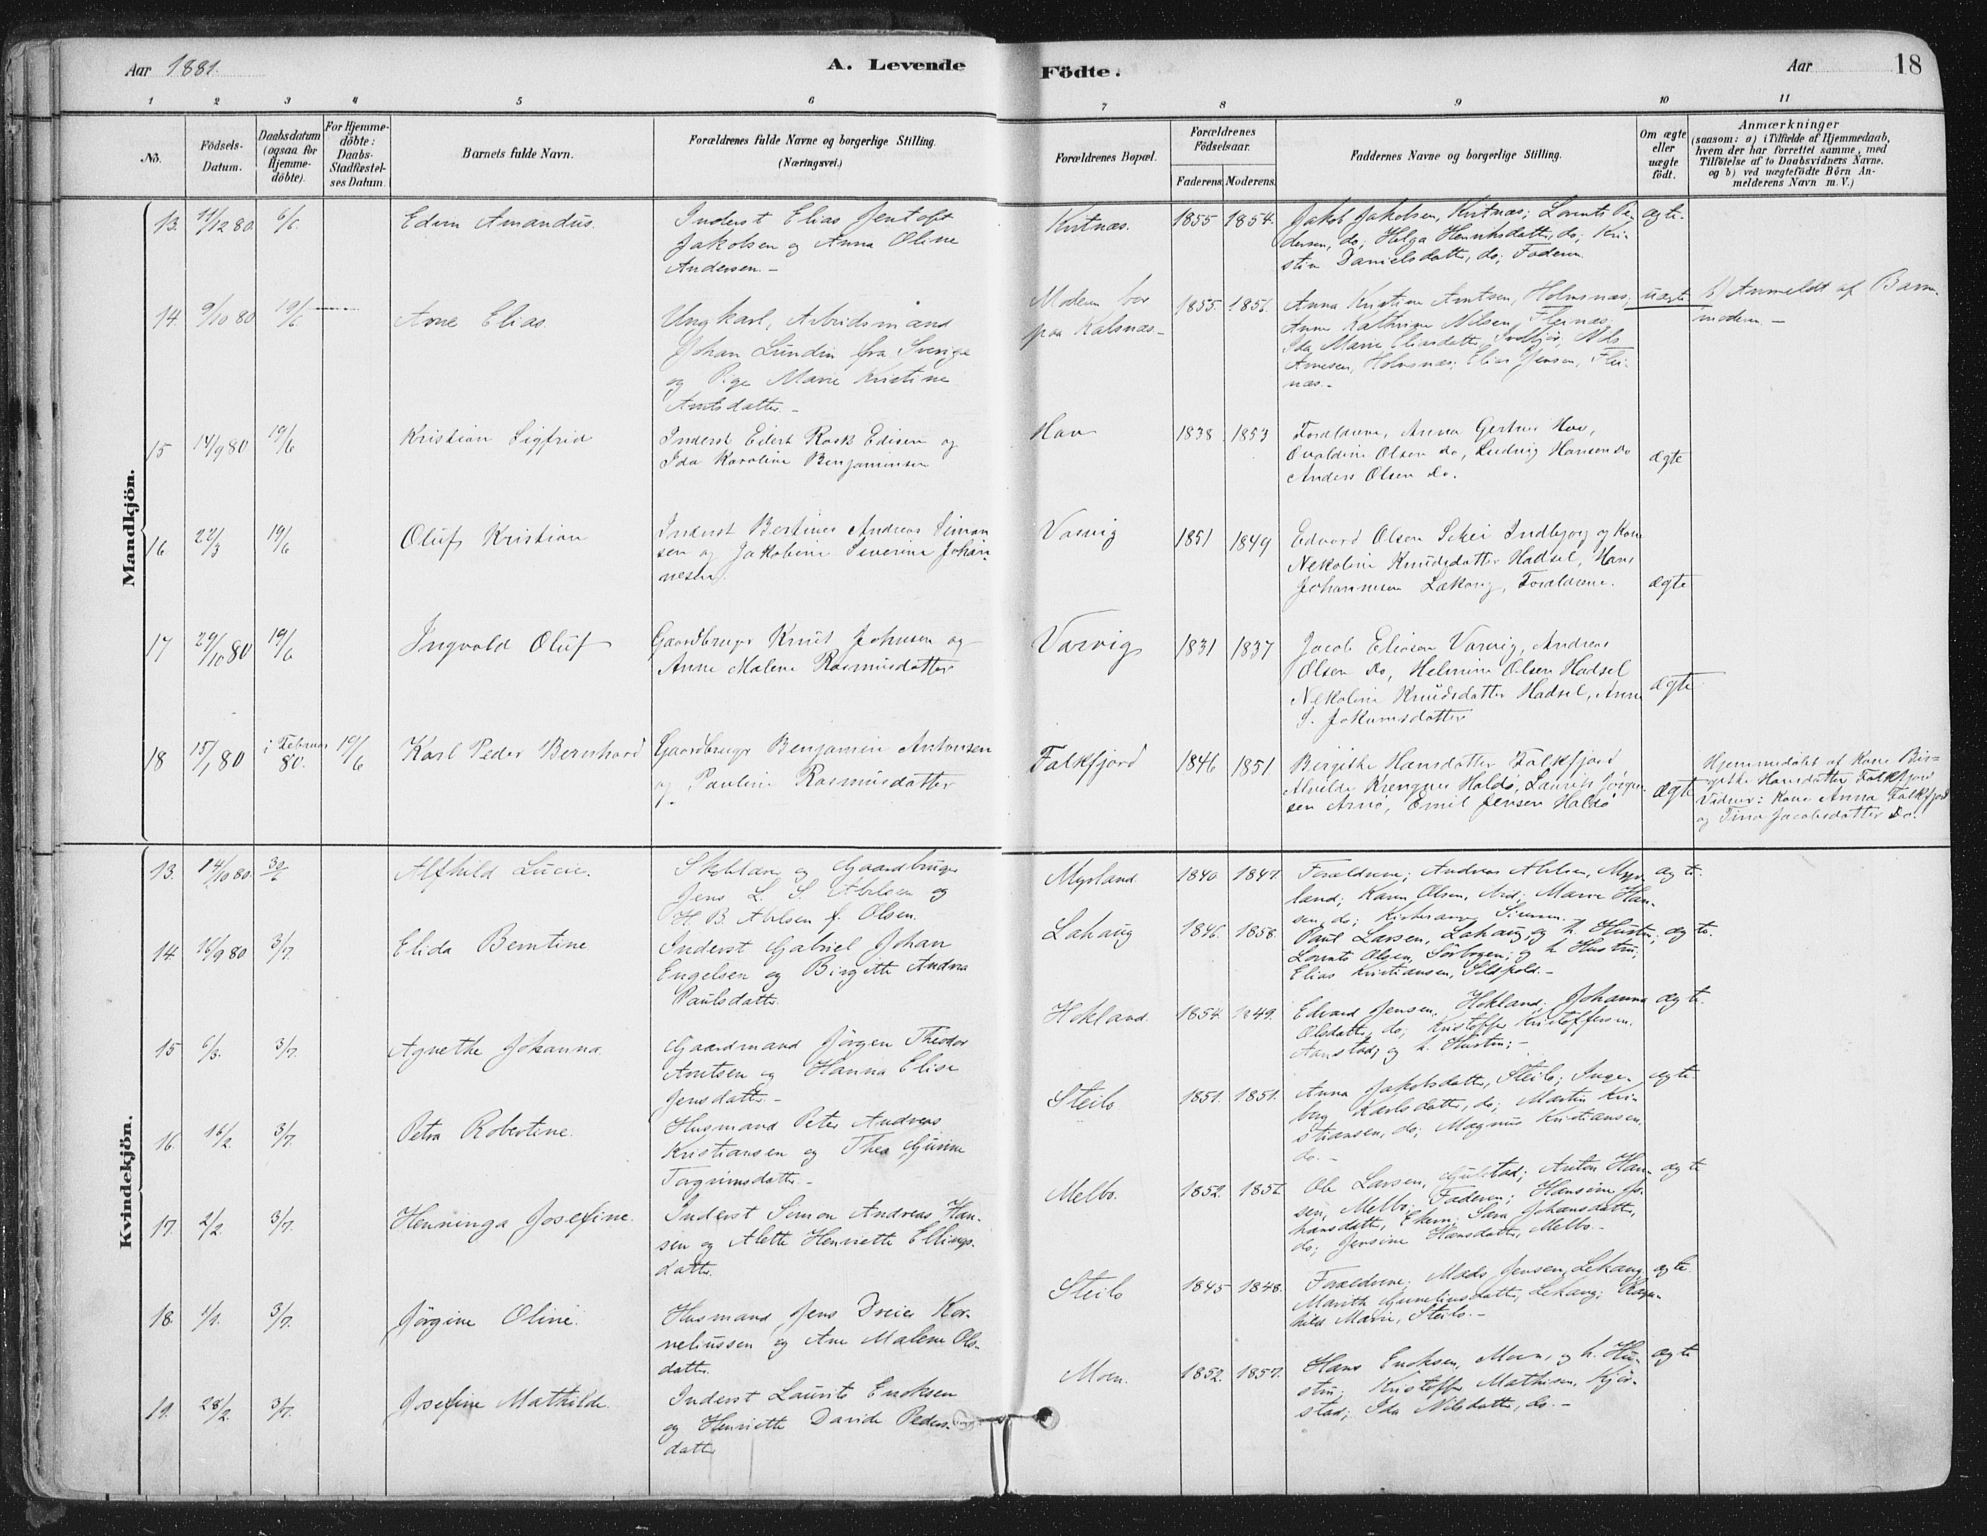 Aar 1881.
A. Levende
Födte.
Aar
18
1 2 3 4 5 6 7 8 9 10 11
No.
Födsels-
Datum.
Daabsdatum
(ogsaa for
Hjemme-
döbte).
For Hjemme-
döbte:
Daabs-
Stadfæstel-
ses Datum.
Barnets fulde Navn.
Forældrenes fulde Navne og borgerlige Stilling.
(Næringsvei.)
Forældrenes Bopæl.
Forældrenes
Födselsaar.
Faderens. Moderens.
Faddernes Navne og borgerlige Stilling.
Om ægte
eller
uægte
födt.
Anmærkninger
(saasom: a) i Tilfælde af Hjemmedaab,
hvem der har forrettet samme, med
Tilföielse af to Daabsvidners Navne.
og b) ved uægtefödte Börn An-
melderens Navn m. V.)
Mandkjön.
13. 11/12 80 6/6. Edvin Amandus.
Inderst Elias Jentoft
Jakobsen og Anna Oline
Andersen.-
1855 1854.
Jakob Jakobsen, Lorents Pe-
dersen, do; Helga Henriksdatter, do; Kri-
stin Danielsdatter, do; Faderen
ægte.
14. 9/10 80 19/6 Arne Elias
Ungkarl, Arbeidsmand
Johan Lundin fra Sverige
og Pige Marie Kristine
Arntsdatter.-
Moderen bor
paa Kalsnæs-
1855. 1856.
Anna Kristine Arntsen, Holmsnæs;
Anne Kathrine Nilsen, Fleinæs,
Ida Marie Eliasdatter, Nils
Arnesen, Holmsnæs; Elias Jensen, Flei-
næs.-
uægte
b) Anmeldt af Barne-
moderen.-
15 14/9 80 19/6 Kristian Sigfrid
Inderst Eilert Rask Edisen og
Ida Karoline Benjaminsen
Hav
1838 1853
Forældrene, Anna Gertine Hov,
Ovaldine Olsen do, Ludvig Hansen do
Anders Olsen do.
ægte
16 22/3 19/6 Oluf Kristian
Inderst Bertines Andreas Simon
sen og Jakobine Severine Johan-
nesen.
Varvig
1851 1849
Edvard Olsen Indbjorg og Kone
Nekoline Knudsdatter Hadsel, Hans
Johannesen Forældrene.
ægte
17 29/10 80 19/6 Ingvald Oluf
Gaardbruger Knut Johnsen og
Anne Malene Rasmusdatter
Varvig
1831 1837
Jacob Eliasen Varvig, Andreas
Olsen do, Helmine Olsen Hadsel
Nekoline Knudsdatter Hadsel, Anne
S. Jokumsdatter
ægte
18 15/1 80 i Februar
80. 19/6 Karl Peder Bernhard
Gaardbruger Benjamin Antonsen
og Pauline Rasmusdatter
Falkfjord
1846 1851
Birgithe Hansdatter Falkfjord,
Alvilde Krengnes Haldö, Laurits Jörgen
sen Arnö, Emil Jensen Haldö
ægte
Hjemmedöbt af Kone Bir-
githe Hansdatter Falkfjord
Vidner: Kone Anna Falkfjord
og Tina Jacobsdatter do.
Kvindekjön.
13. 14/10 80. Alfhild Lucie.
og Gaardbruger
Jens L. S. Abelsen og
H. B. Abelsen f. Olsen.
Myrland
1840 1847
Forældrene; Andreas Abelsen, Myr-
land; Karen Olsen, Marie Han-
sen, do;
ægte.
14 16/9 80 3/7. Elida Berntine
Inderst Gabriel Johan
Engelsen og Birgitte Andrea
Paulsdatter.
Lahaug
1846. 1858.
Paul Larsen, Lahaug og h. Hustru;
Lorents Olsen, Sörbogen; og h. Hustru;
Elias Kristiansen,
ægte.
15 6/3. 3/7. Agnethe Johanna
Gaardmand Jörgen Theodor
Arntsen og Hanna Elise
Jensdatter.-
Hokland
1854 1849.
Edvard Jensen, Hokland; Johanna
Olsdatter, do; Kristoffer Kristoffersen,
Aanstad; og h. Hustru;-
ægte.
16. 16/2 3/7. Petra Robertine.
Husmand Peter Andreas
Kristiansen og Thea Gurine
Torgrimsdatter.-
Steilo
1851. 1851.
Anna Jakobsdatter, Steilo; Inge-
borg Karlsdatter, do; Martin Kri-
stiansen, do; Magnus Kristiansen,
do.-
ægte
17. 2/2 3/7. Henninga Josefine.
Inderst Simon Andreas Han-
sen og Alette Henriette Ellings-
datter.
Melbo.
1852.
Ole Larsen, Anton Han-
sen, Melbo; Faderen; Hansine Jo-
hansdatter, Sara Johansdatter,
do; Jensine Hansdatter, Melbo.-
ægte
18. 1/1. 3/7. Jörgine Oline.
Husmand Jens Dreier Kor-
neliussen og Ane Malene Ols-
datter
Steilo
1845 1848.
Forældrene; Mads Jensen, Lekang
Marith Korneliusdatter, Lekang; Ragn-
hild Marie, Steilo.-
ægte
19. 28/2 3/7. Josefine Mathilde.
Inderst Laurits Enoksen
og Henriette Davide Peders-
datter
Moen.
1852. 1857.
Hans Enoksen, Moen, og h. Hu-
stru; Kristoffer Mathisen, Kjör-
stad; Ida Nilsdatter, do.-
ægte